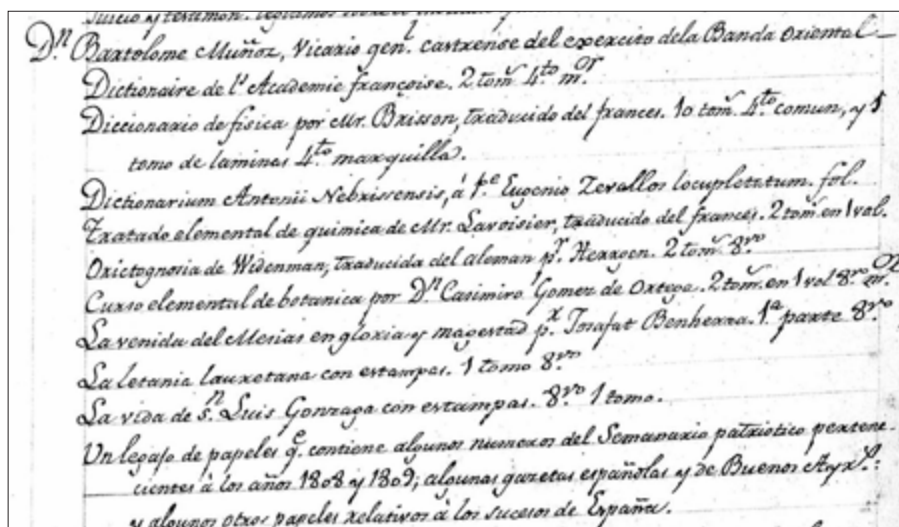 juicio y testimon. legitimos sobre
D.n Bartolome Muñoz, Vicario gen.l castrense del exercito dela Banda Oriental
Dictionaire de l' Academie françoise. 2 tom.s 4.to m.or
Diccionario de fisica por Mr. Brisson, traducido del frances. 10 tom.s 4.to comun, y 1
tomo de laminas 4.to marquilla.
Dictionarium Antonii Nebrissensis, á P.e Eugenio Zevallos locupletatum. fol.
Tratado elemental de quimica de Mr. Lavoisier, traducido del frances. 2 tom.s en 1 vol.
Orictognosia de Widenman, traducida del aleman p.r Herrgen. 2 tom.s 8.vo
Curso elemental de botanica por D.n Casimiro Gomez de Ortega. 2 tom.s en 1 vol 8.vo m.or
La venida del Mesias en gloria y magestad p.r Josafat Benhezra. 1.a parte 8.vo
La letania lauretana con estampas. 1 tomo 8.vo
La vida de s.n Luis Gonzaga con estampas. 8.vo 1 tomo.
Un legajo de papeles q.e contiene algunos numeros del Semanario patriotico pertene-
cientes á los años 1808 y 1809; algunas gazetas españolas y de Buenos Ayr.s:
y algunos otros papeles relativos a los sucesos de España.